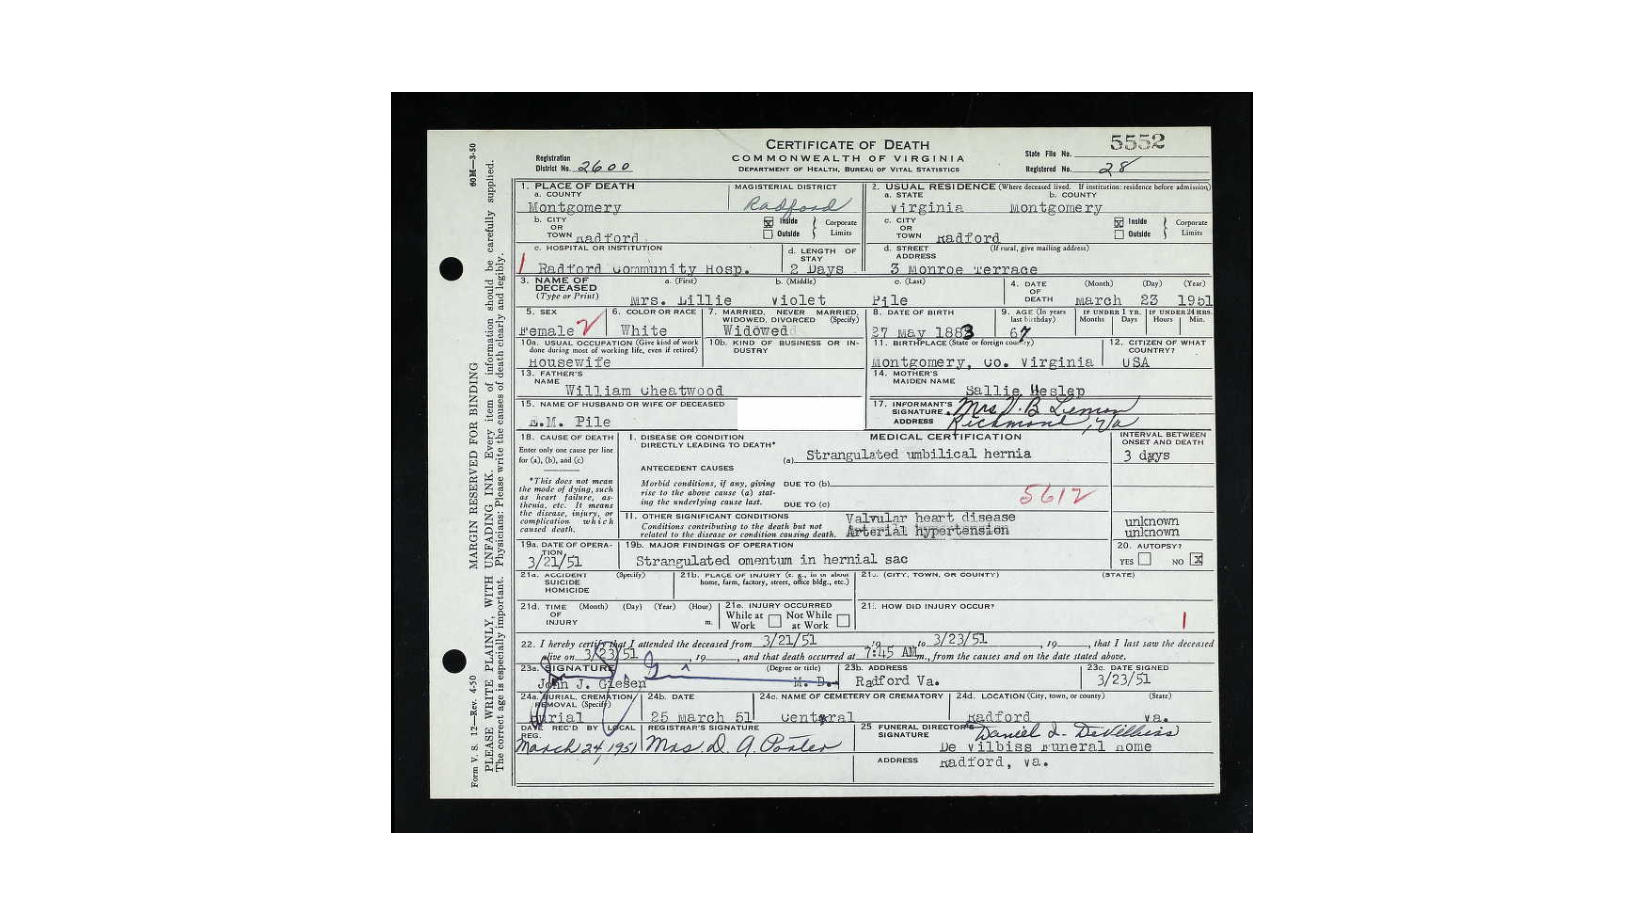 5552
CERTIFICATE OF DEATH
COMMONWEALTH OF VIRGINIA
DEPARTMENT OF HEALTH, BUREAU OF VITAL STATISTICS
Registration District No. 2600
State File No.
Registered No. 28
60M—3-50
MARGIN RESERVED FOR BINDING
PLEASE WRITE PLAINLY, WITH UNFADING INK. Every item of information should be carefully supplied.
The correct age is especially important. Physicians: Please write the causes of death clearly and legibly.
Form V. S. 12—Rev. 4-50
1. PLACE OF DEATH
a. COUNTY
Montgomery
MAGISTERIAL DISTRICT
Radford
2. USUAL RESIDENCE (Where deceased lived. If institution: residence before admission)
a. STATE b. COUNTY
Virginia Montgomery
b. CITY OR TOWN Radford
Inside Outside Corporate Limits
c. CITY OR TOWN Radford
Inside Outside Corporate Limits
c. HOSPITAL OR INSTITUTION
Radford Community Hosp.
d. LENGTH OF STAY
2 Days
d. STREET ADDRESS (If rural, give mailing address)
3 Monroe Terrace
3. NAME OF DECEASED (Type or Print)
a. (First) b. (Middle) c. (Last)
Mrs. Lillie Violet Pile
4. DATE OF DEATH (Month) (Day) (Year)
March 23 1951
5. SEX
Female 2
6. COLOR OR RACE
White
7. MARRIED, NEVER MARRIED, WIDOWED, DIVORCED (Specify)
Widowed
8. DATE OF BIRTH
27 May 1883
9. AGE (In years last birthday)
67
IF UNDER 1 YR. Months Days
IF UNDER 24 HRS. Hours Min.
10a. USUAL OCCUPATION (Give kind of work done during most of working life, even if retired)
Housewife
10b. KIND OF BUSINESS OR INDUSTRY
11. BIRTHPLACE (State or foreign country)
Montgomery, Co. Virginia
12. CITIZEN OF WHAT COUNTRY?
USA
13. FATHER'S NAME
William Cheatwood
14. MOTHER'S MAIDEN NAME
Sallie Heslep
15. NAME OF HUSBAND OR WIFE OF DECEASED
E.M. Pile
17. INFORMANT'S SIGNATURE Mrs. J. B. Lemon
ADDRESS Richmond, Va
18. CAUSE OF DEATH
Enter only one cause per line for (a), (b), and (c)
*This does not mean the mode of dying, such as heart failure, asthenia, etc. It means the disease, injury, or complication which caused death.
MEDICAL CERTIFICATION
I. DISEASE OR CONDITION DIRECTLY LEADING TO DEATH*
(a) Strangulated umbilical hernia
INTERVAL BETWEEN ONSET AND DEATH
3 days
ANTECEDENT CAUSES
Morbid conditions, if any, giving rise to the above cause (a) stating the underlying cause last.
DUE TO (b)
5612
DUE TO (c)
II. OTHER SIGNIFICANT CONDITIONS
Conditions contributing to the death but not related to the disease or condition causing death.
Valvular heart disease
Arterial hypertension
unknown
unknown
19a. DATE OF OPERATION
3/21/51
19b. MAJOR FINDINGS OF OPERATION
Strangulated omentum in hernial sac
20. AUTOPSY?
YES NO X
21a. ACCIDENT SUICIDE HOMICIDE (Specify)
21b. PLACE OF INJURY (e. g., in or about home, farm, factory, street, office bldg., etc.)
21c. (CITY, TOWN, OR COUNTY) (STATE)
21d. TIME OF INJURY (Month) (Day) (Year) (Hour) m.
21e. INJURY OCCURRED
While at Work Not While at Work
21f. HOW DID INJURY OCCUR?
22. I hereby certify that I attended the deceased from 3/21/51, 19 to 3/23/51, 19, that I last saw the deceased
alive on 3/23/51, 19, and that death occurred at 7:45 AM m., from the causes and on the date stated above.
23a. SIGNATURE (Degree or title)
John J. Giesen M. D.
23b. ADDRESS
Radford Va.
23c. DATE SIGNED
3/23/51
24a. BURIAL, CREMATION, REMOVAL (Specify)
Burial
24b. DATE
25 March 51
24c. NAME OF CEMETERY OR CREMATORY
Central
24d. LOCATION (City, town, or county) (State)
Radford Va.
DATE REC'D BY LOCAL REG.
March 24, 1951
REGISTRAR'S SIGNATURE
Mrs. D. A. Porter
25 FUNERAL DIRECTOR'S SIGNATURE Daniel L. DeVilbiss
De Vilbiss Funeral Home
ADDRESS Radford, Va.